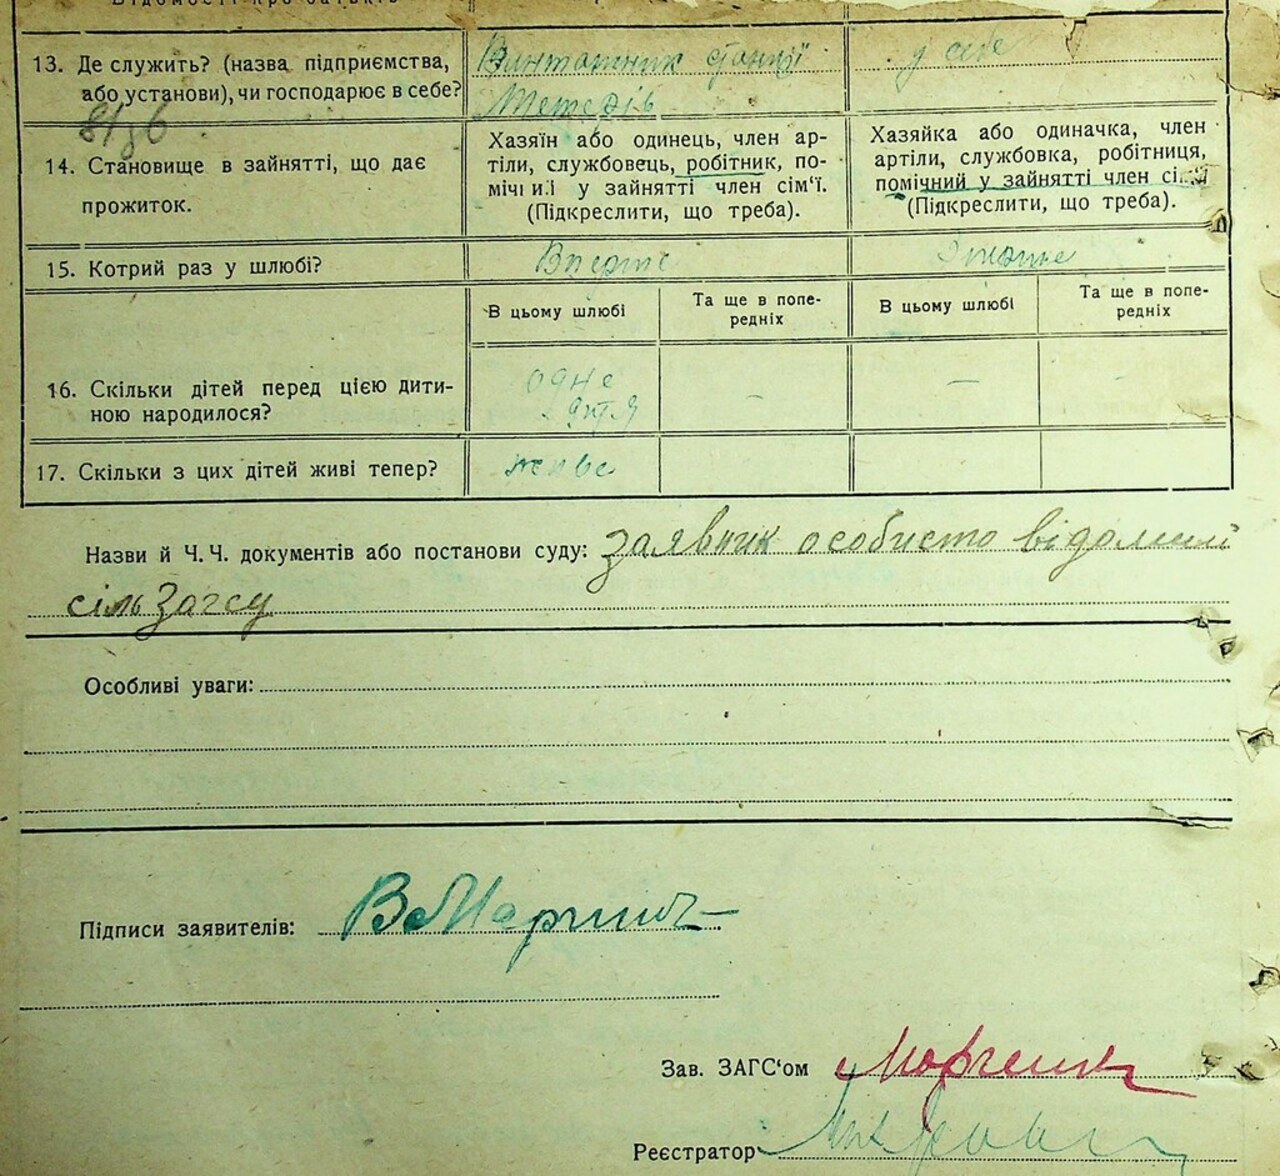 13. Де служить? (назва підприємства, або установи), чи господарює в себе?
Вантажник станції
Тетерів
у себе
14. Становище в зайнятті, що дає прожиток.
Хазяїн або одинець, член ар-
тіли, службовець, робітник, по-
мічний у зайнятті член сім'ї.
(Підкреслити, що треба).
Хазяйка або одиначка, член
артіли, службовка, робітниця,
помічний у зайнятті член сім'ї
(Підкреслити, що треба).
15. Котрий раз у шлюбі?
Вперше
В цьому шлюбі
Та ще в попе-
редніх
В цьому шлюбі
Та ще в попе-
редніх
16. Скільки дітей перед цією дити-
ною народилося?
одне
дитя
—
—
-
17. Скільки з цих дітей живі тепер?
живе
Назви й Ч.Ч. документів або постанови суду: заявник особисто відомий
сільЗагсу
Особливі уваги:
Підписи заявителів:
Зав. ЗАГС'ом
Реєстратор